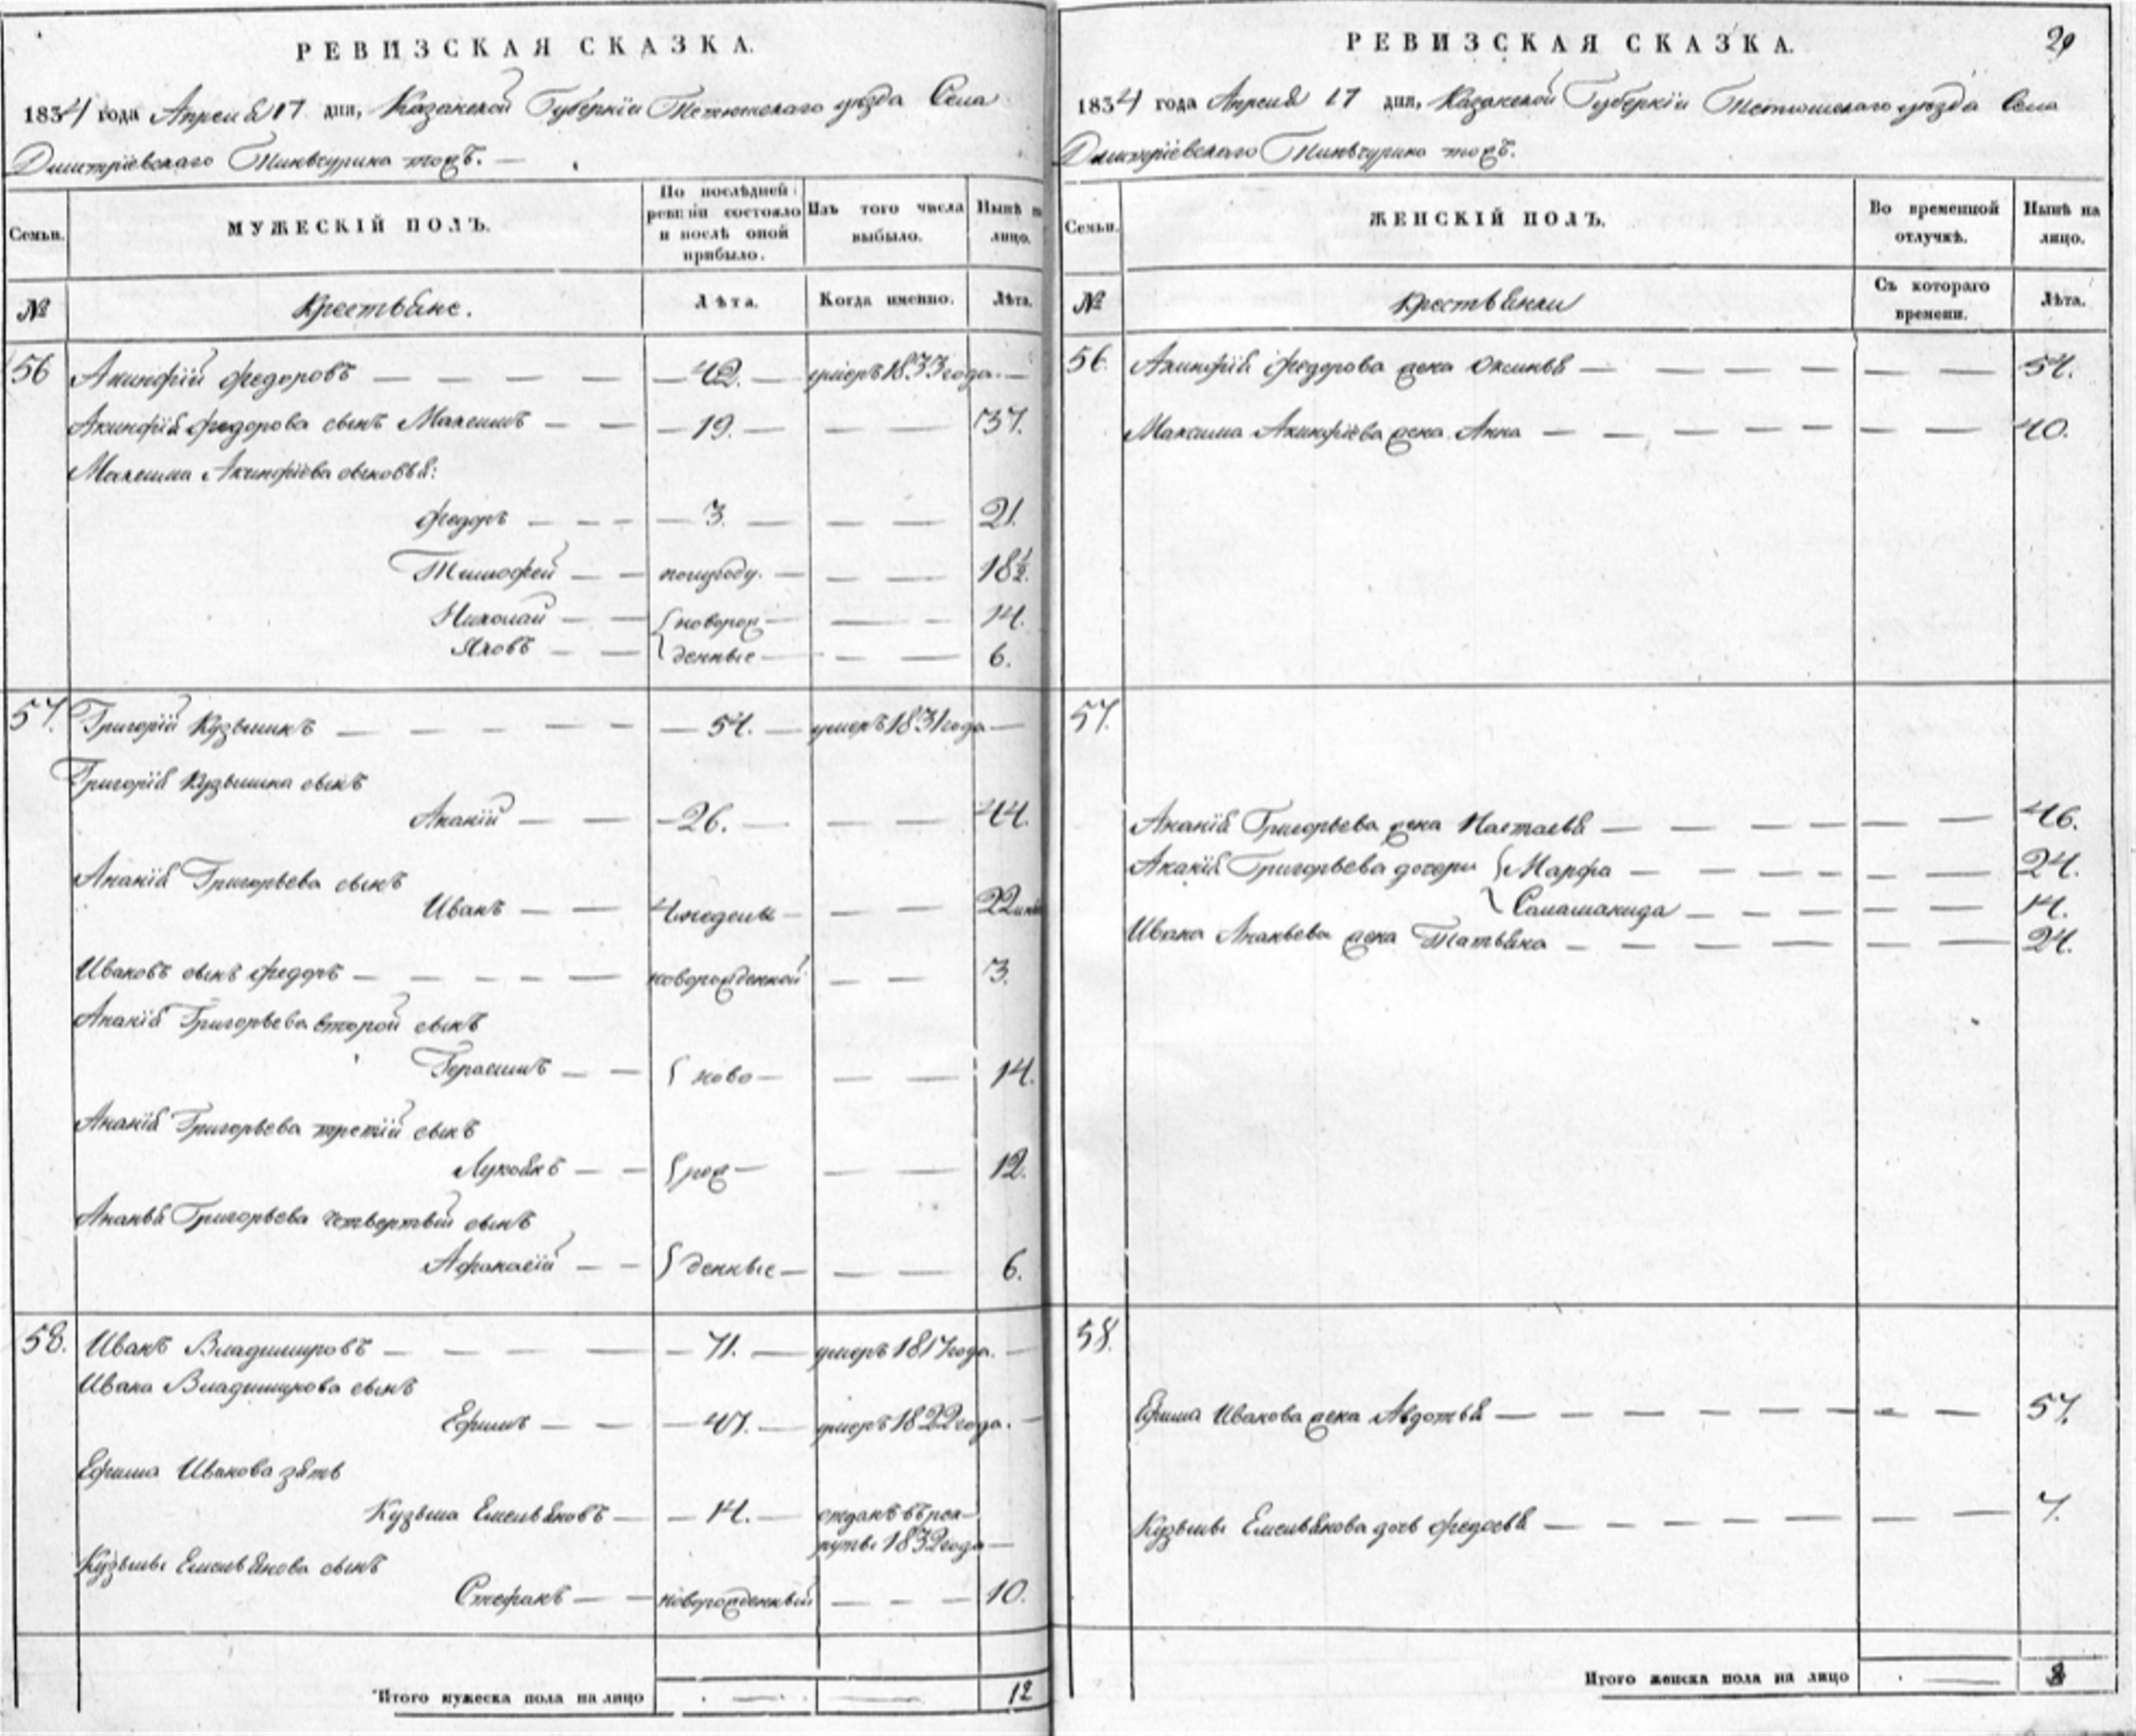 РЕВИЗСКАЯ СКАЗКА.
1834 года Апреля 17 дня, Казанской Губернiи Тетюшскаго уезда Села
Дмитрiевскаго Тинчурина тожъ.
Семьи.
МУЖЕСКIЙ ПОЛЪ.
По последней ревизiи состояло и после оной прибыло.
Изъ того числа выбыло.
Ныне на лицо.
№
Крестьяне.
Лѣта.
Когда именно.
Лѣта.
56 Акинфiй Федоровъ — 42. — умеръ 1833 года. —
Акинфiя Федорова сынъ Максимъ — 19. — 37.
Максима Акинфiева сыновья:
Федоръ — 3. — 21.
Тимофей — полугоду. — 18½.
Николай — новорож- — 14.
Яковъ — денные — 6.
57. Григорiй Кузьминъ — 54. — умеръ 1831 года —
Григорiя Кузьмина сынъ
Ананiй — 26. — 44.
Ананiя Григорьева сынъ
Иванъ — 4 недели — 22
Ивановъ сынъ Федоръ — новорожденной — 3.
Ананiя Григорьева второй сынъ
Герасимъ — ново — 14.
Ананiя Григорьева третiй сынъ
Лукоянъ — рож — 12.
Ананья Григорьева четвертый сынъ
Афанасiй — денные — 6.
58. Иванъ Владимировъ — 71. — умеръ 1817 года. —
Ивана Владимирова сынъ
Ефимъ — 47. — умеръ 1822 года. —
Ефима Иванова зять
Кузьма Емельяновъ — 14. — отданъ въ рек-
руты 1832 года —
Кузьмы Емельянова сынъ
Стефанъ — новорожденный — 10.
Итого мужеска пола на лицо — 12
РЕВИЗСКАЯ СКАЗКА.
1834 года Апреля 17 дня, Казанской Губернiи Тетюшскаго уезда Села
Дмитрiевскаго Тинчурина тожъ.
Семьи.
ЖЕНСКIЙ ПОЛЪ.
Во временной отлучкѣ.
Нынѣ на лицо.
№
Крестьянки
Съ котораго времени.
Лѣта.
56. Акинфiя Федорова жена Оксинья — 54.
Максима Акинфiева жена Анна — 40.
57.
Ананiя Григорьева жена Настасья — 46.
Ананiя Григорьева дочери Марфа — 24.
Саламанида — 14.
Ивана Ананьева жена Татьяна — 24.
58.
Ефима Иванова жена Авдотья — 57.
Кузьмы Емельянова дочь Федосья — 7.
Итого женска пола на лицо — 8